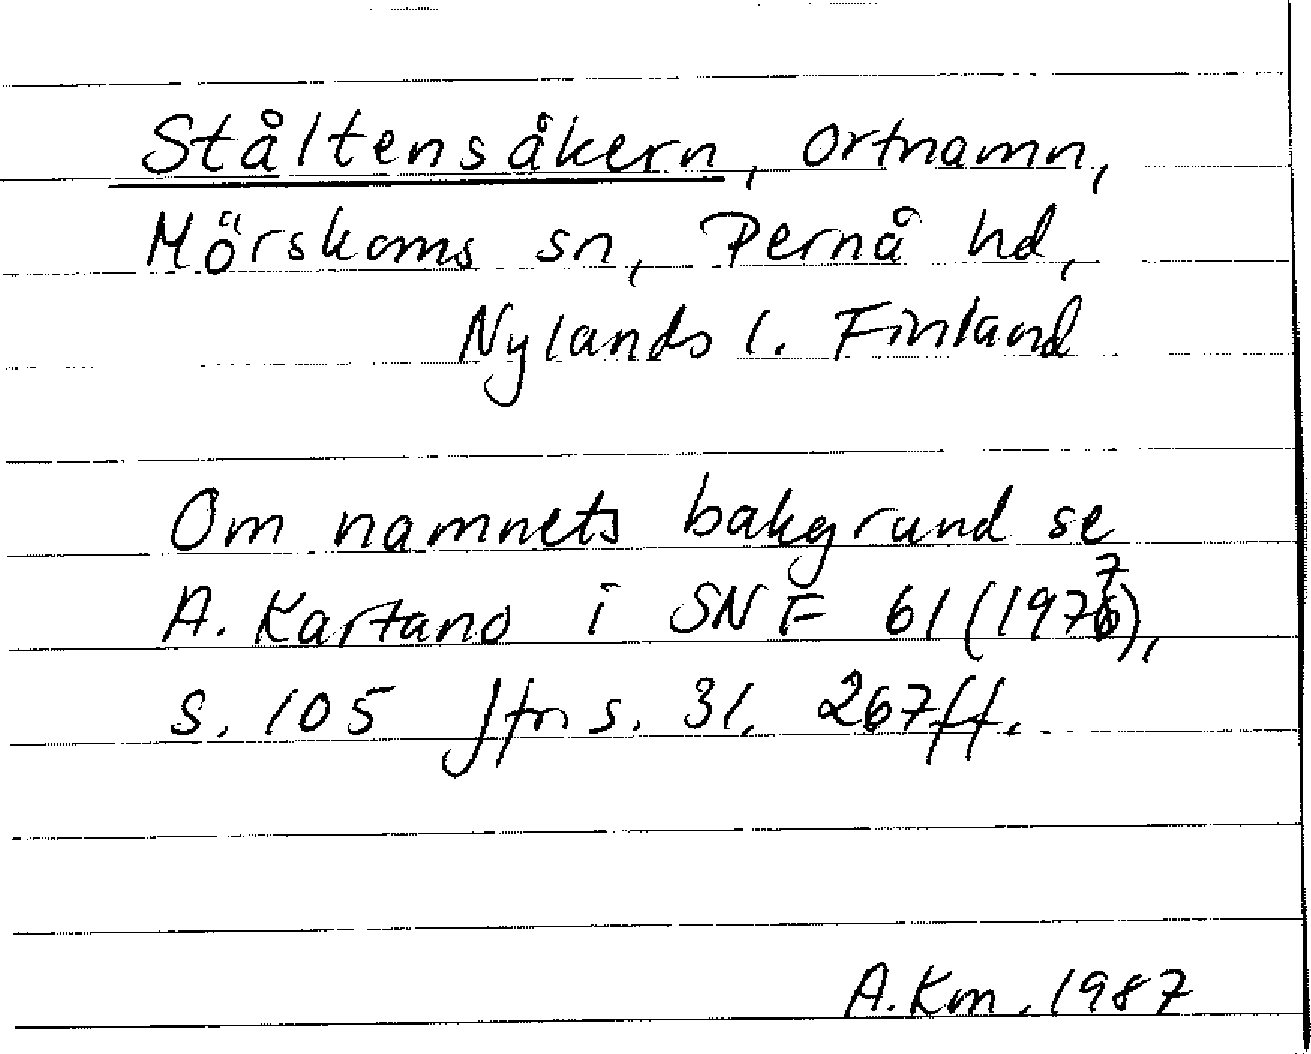 Ståltensåkern, ortnamn,
Mörskoms sn, Pernå hd,
Nylands l. Finland
Om namnets bakgrund se
A. Kartano i SNF 61 (1977),
s. 105 jfr s. 31, 267 ff.
A. Km. 1987